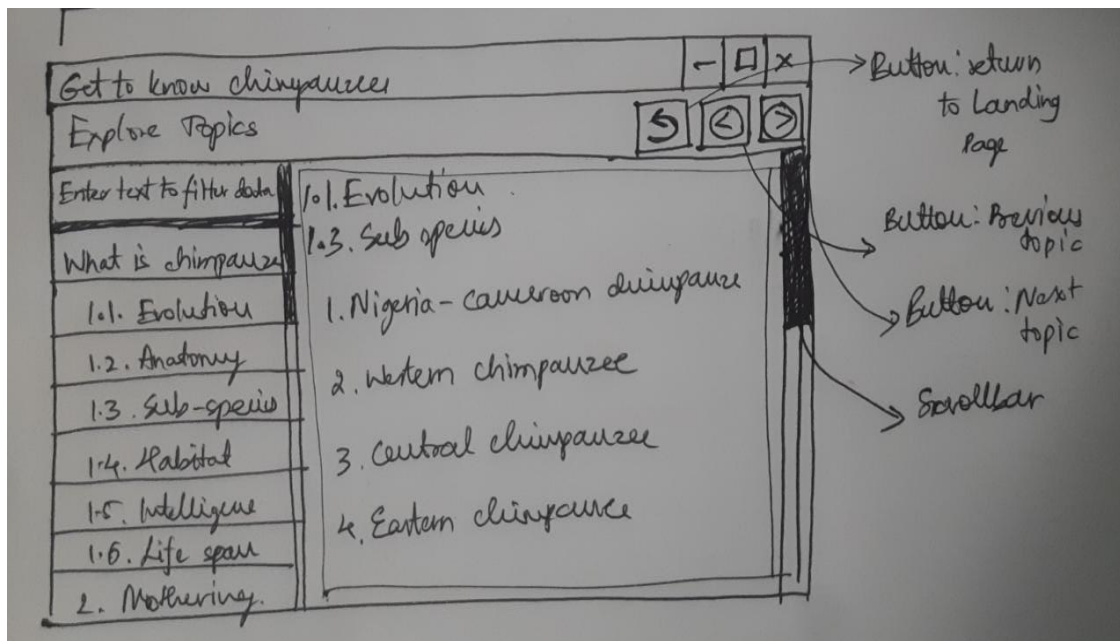 Get to know chimpanzees
Explore Topics
Enter text to filter data
What is chimpanzee
1.1. Evolution
1.2. Anatomy
1.3. Sub-species
1.4. Habital
1.5. Intelligence
1.6. Life span
2. Mothering.
1.1. Evolution
1.3. Sub species
1. Nigeria-cameroon chimpanzee
2. Western chimpanzee
3. Central chimpanzee
4. Eastern chimpanzee
Button: return
to Landing
Page
Button: Previous
topic
Button: Next
topic
Scrollbar